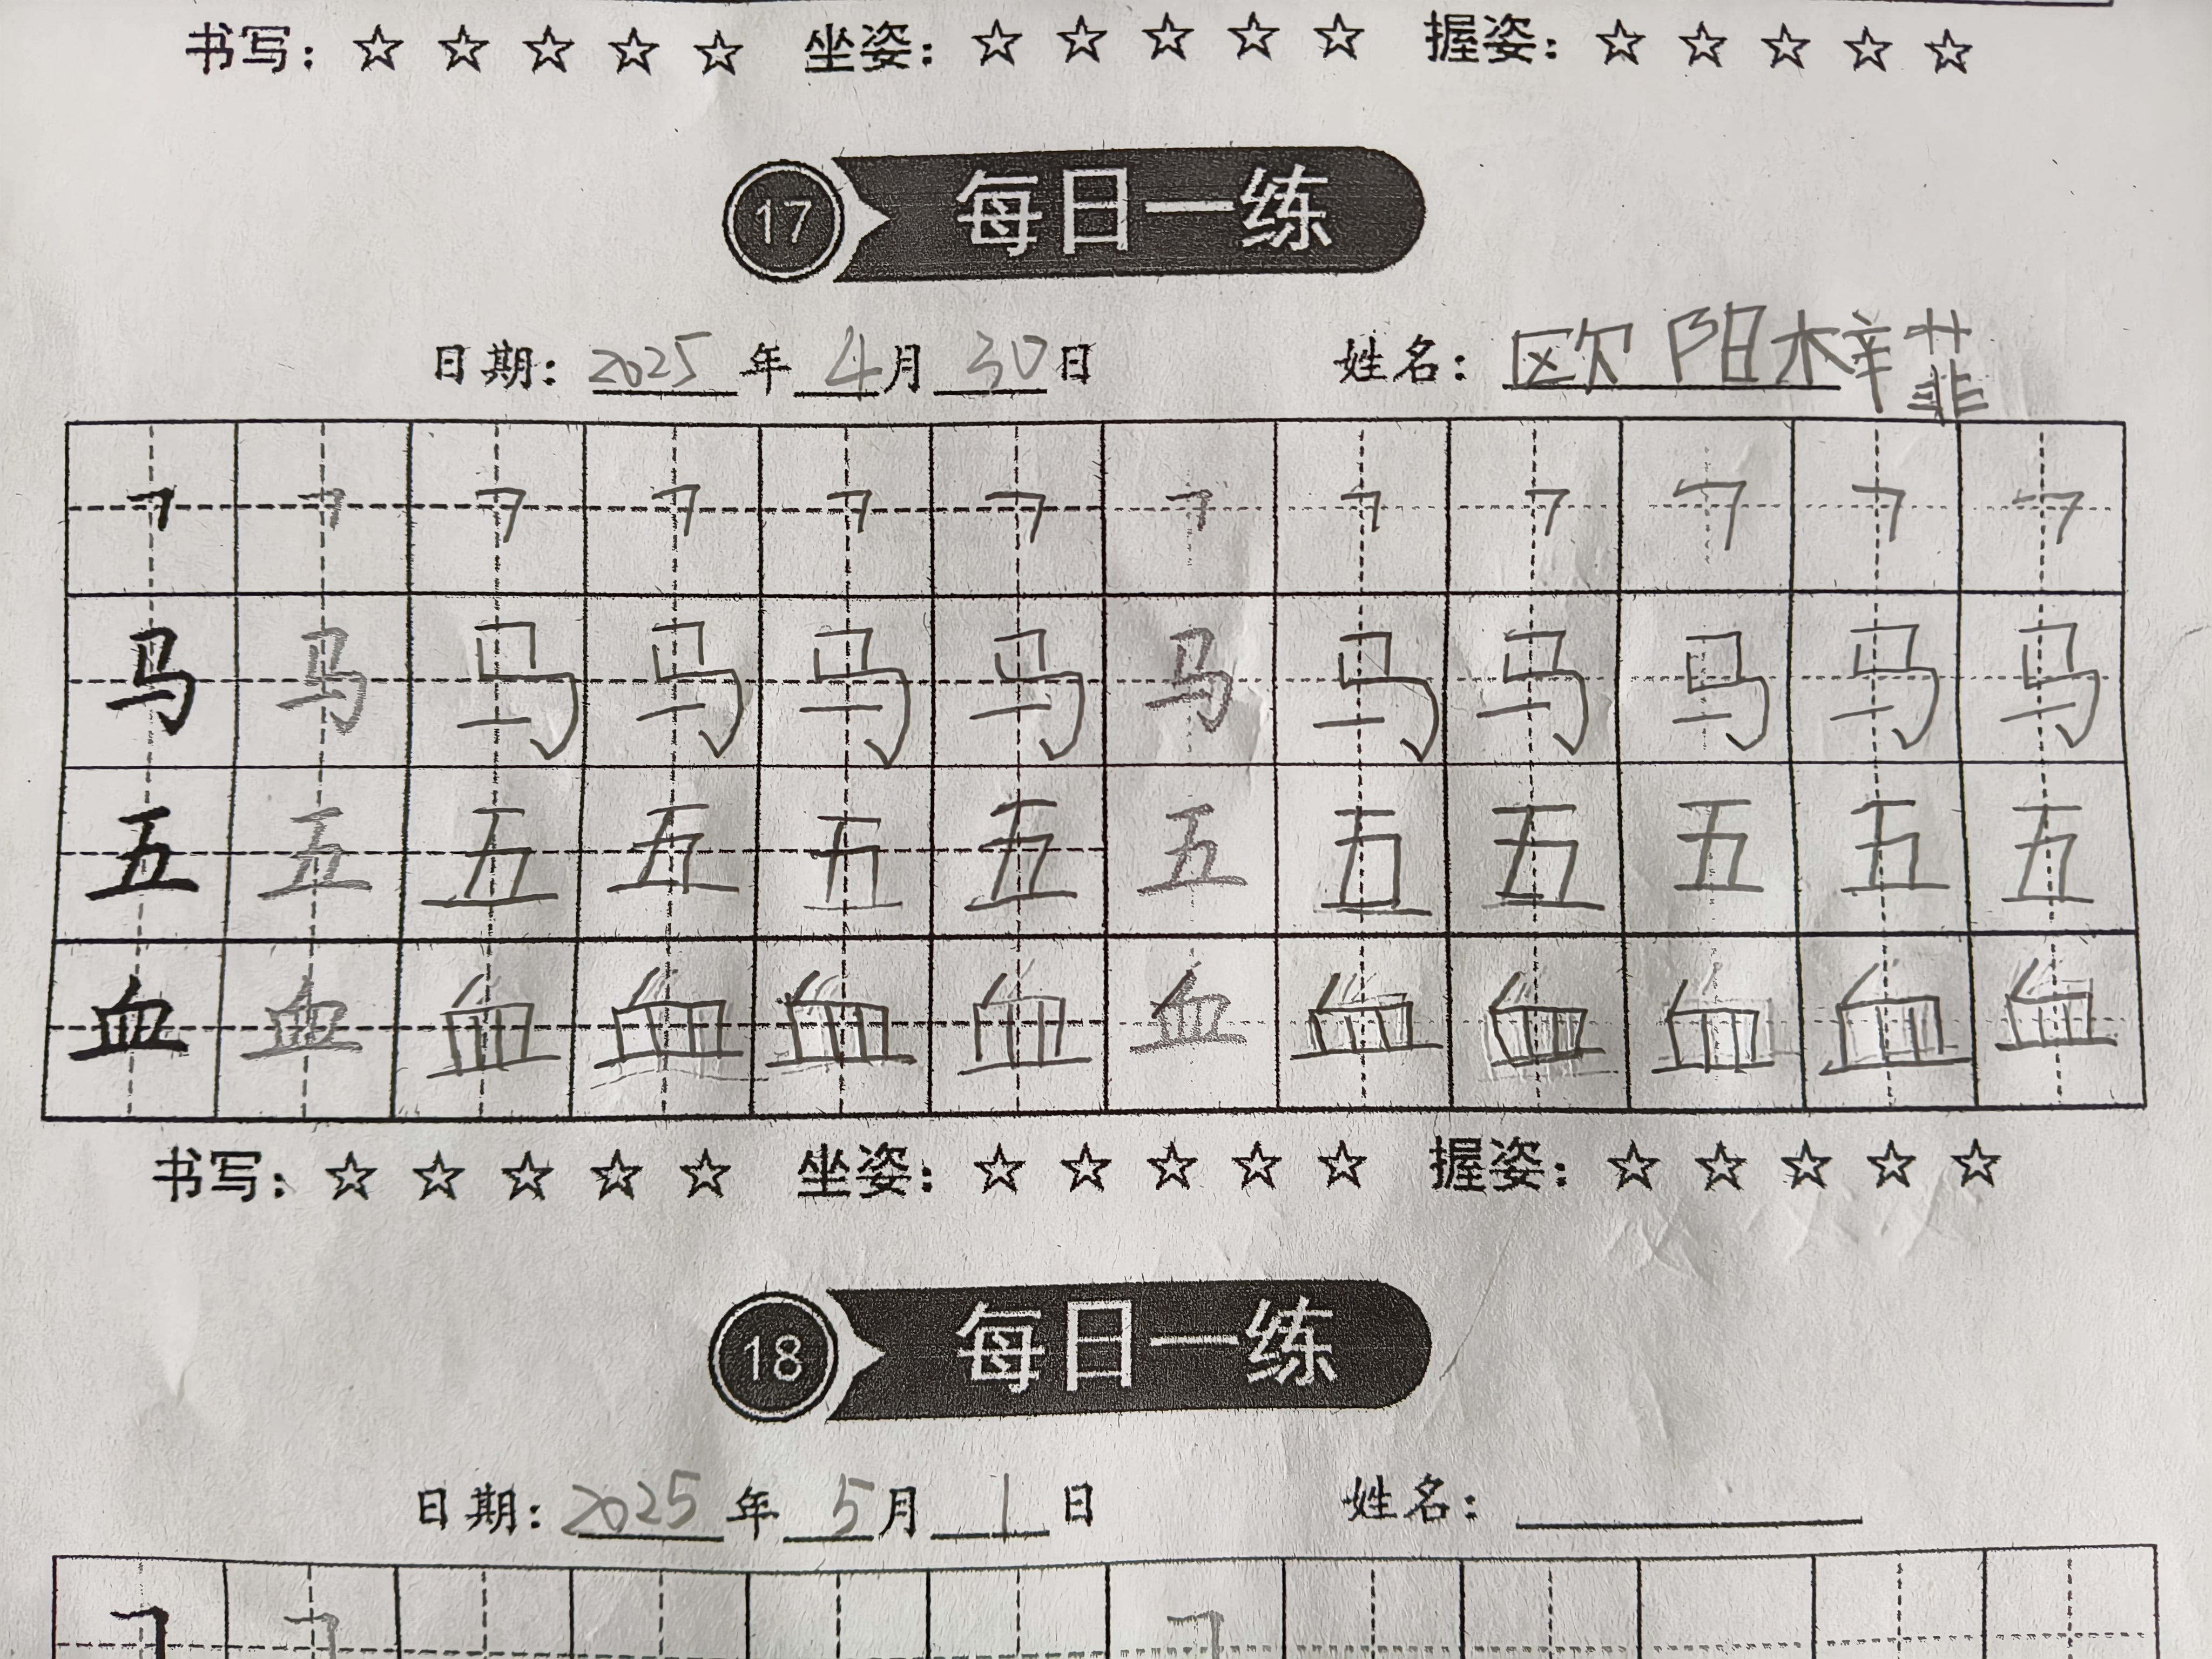 书写：☆ ☆ ☆ ☆ ☆ 坐姿：☆ ☆ ☆ ☆ ☆ 握姿：☆ ☆ ☆ ☆ ☆
17 每日一练
日期：2025年4月30日 姓名：欧阳梓菲
㇕ ㇕ ㇕ ㇕ ㇕ ㇕ ㇕ ㇕ ㇕ ㇕ ㇕ ㇕
马 马 马 马 马 马 马 马 马 马 马 马
五 五 五 五 五 五 五 五 五 五 五 五
血 血 血 血 血 血 血 血 血 血 血 血
书写：☆ ☆ ☆ ☆ ☆ 坐姿：☆ ☆ ☆ ☆ ☆ 握姿：☆ ☆ ☆ ☆ ☆
18 每日一练
日期：2025年5月1日 姓名：
㇕ ㇕ ㇕